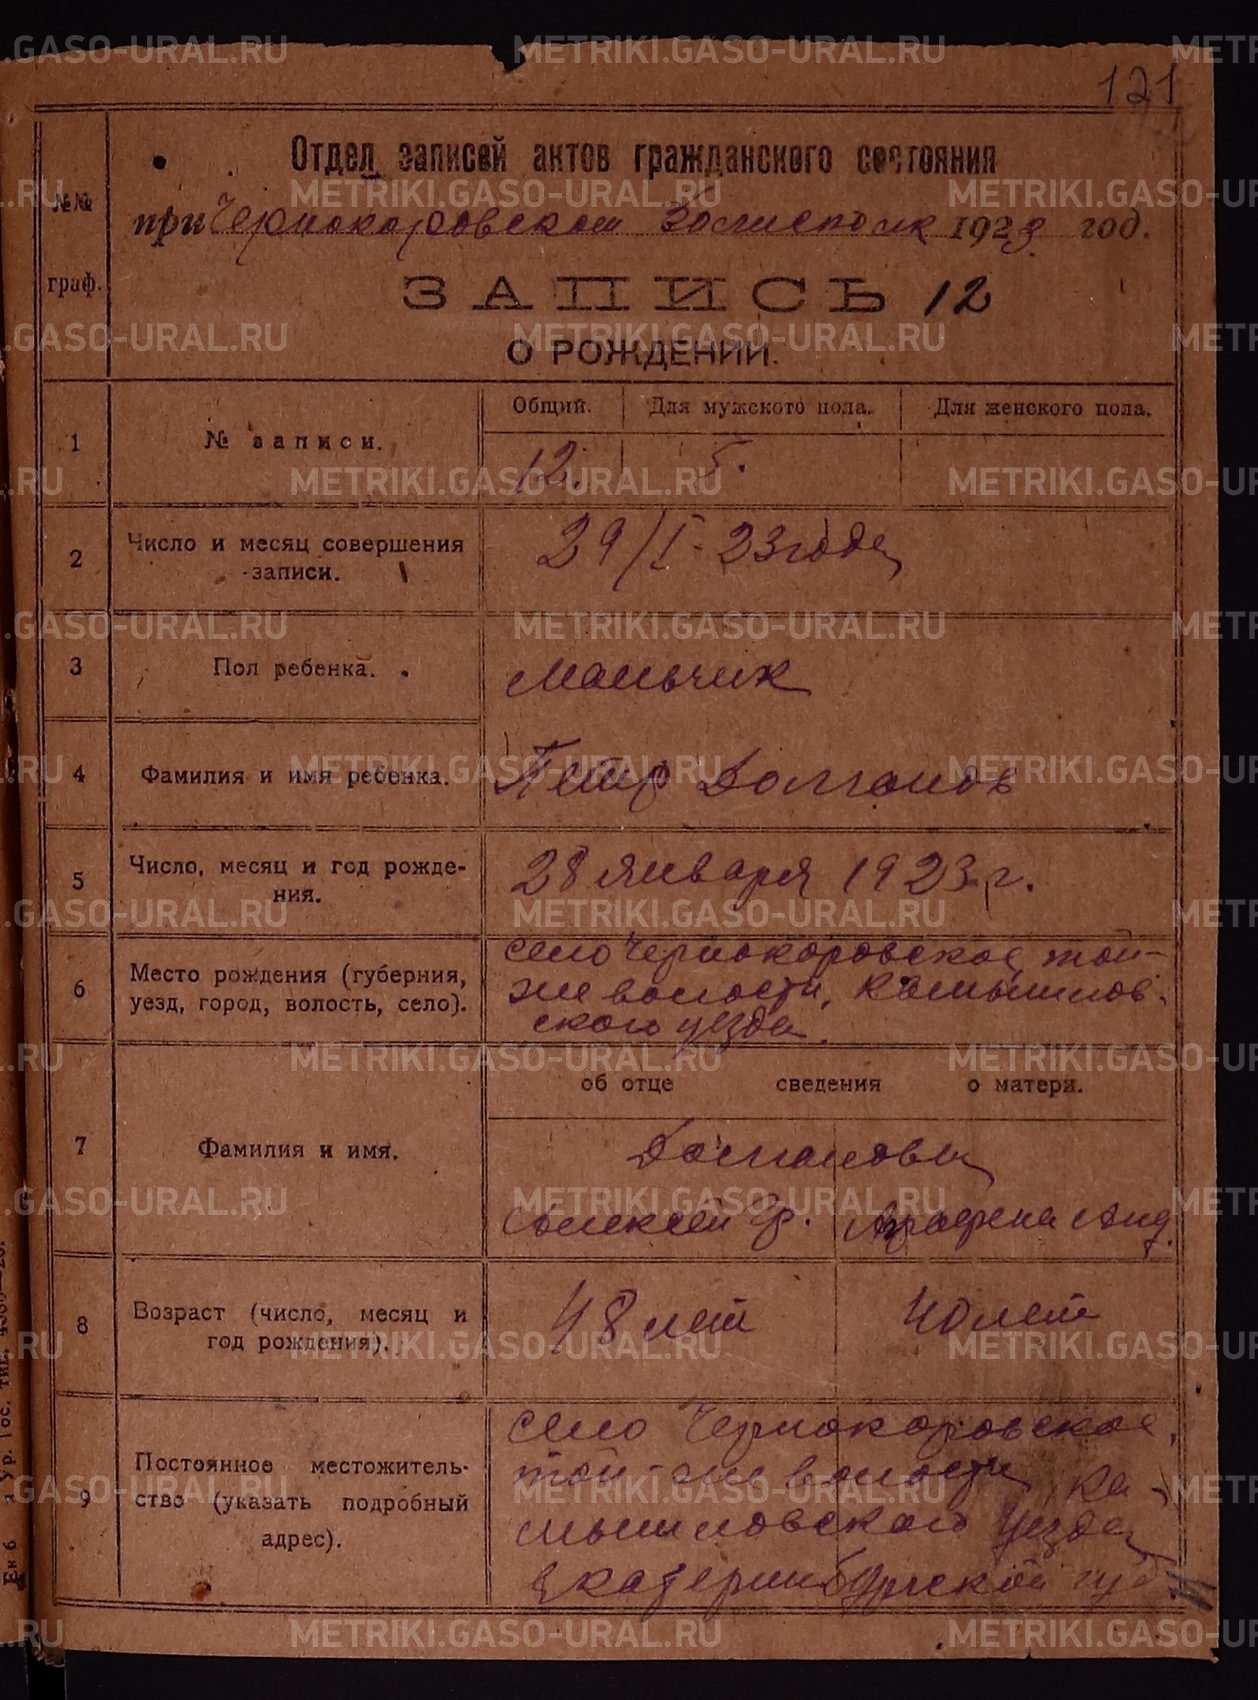 121
Отдел записей актов гражданского состояния
№№
при Чернокоровском Волисполк 1923 год.
граф.
ЗАПИСЬ 12
О РОЖДЕНИИ.
Общий. Для мужского пола. Для женского пола.
1 № записи.
12. 5.
2 Число и месяц совершения
записи.
29/I-23 года
3 Пол ребенка.
Мальчик
4 Фамилия и имя ребенка.
Петр Долганов
5 Число, месяц и год рожде-
ния.
28 января 1923 г.
6 Место рождения (губерния,
уезд, город, волость, село).
село Чернокоровское, той-
же волости, Камышлов-
ского уезда.
об отце сведения о матери.
7 Фамилия и имя.
Долгановы
Алексей Гр. Аграфена Анд.
8 Возраст (число, месяц и
год рождения).
48 лет 40 лет
9 Постоянное местожитель-
ство (указать подробный
адрес).
село Чернокоровское,
той-же волости, Ка-
мышловского уезда
Екатеринбургской губ
METRIKI.GASO-URAL.RU